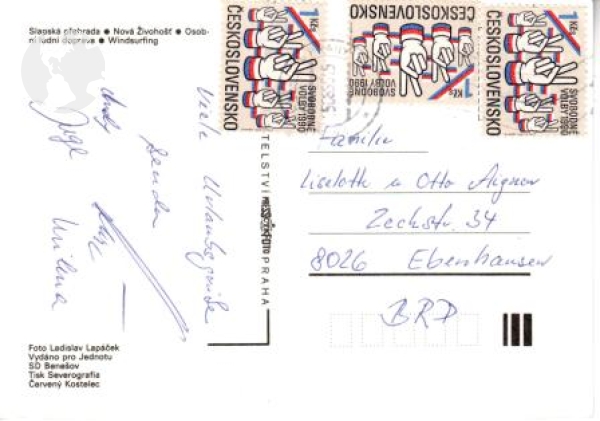 Slapská přehrada ● Nová Živohošť ● Osob-
ní lodní doprava ● Windsurfing
Viele Urlaubsgrüße
senden
Foto Ladislav Lapáček
Vydáno pro Jednotu
SD Benešov
Tisk Severografia
Červený Kostelec
PRAHA
1 Kčs
ČESKOSLOVENSKO
SVOBODNÉ
VOLBY 1990
1 Kčs
ČESKOSLOVENSKO
SVOBODNÉ
VOLBY 1990
1 Kčs
ČESKOSLOVENSKO
SVOBODNÉ
VOLBY 1990
Familie
Liselotte u Otto Aigner
Zeckstr. 34
8026 Ebenhausen
BRD